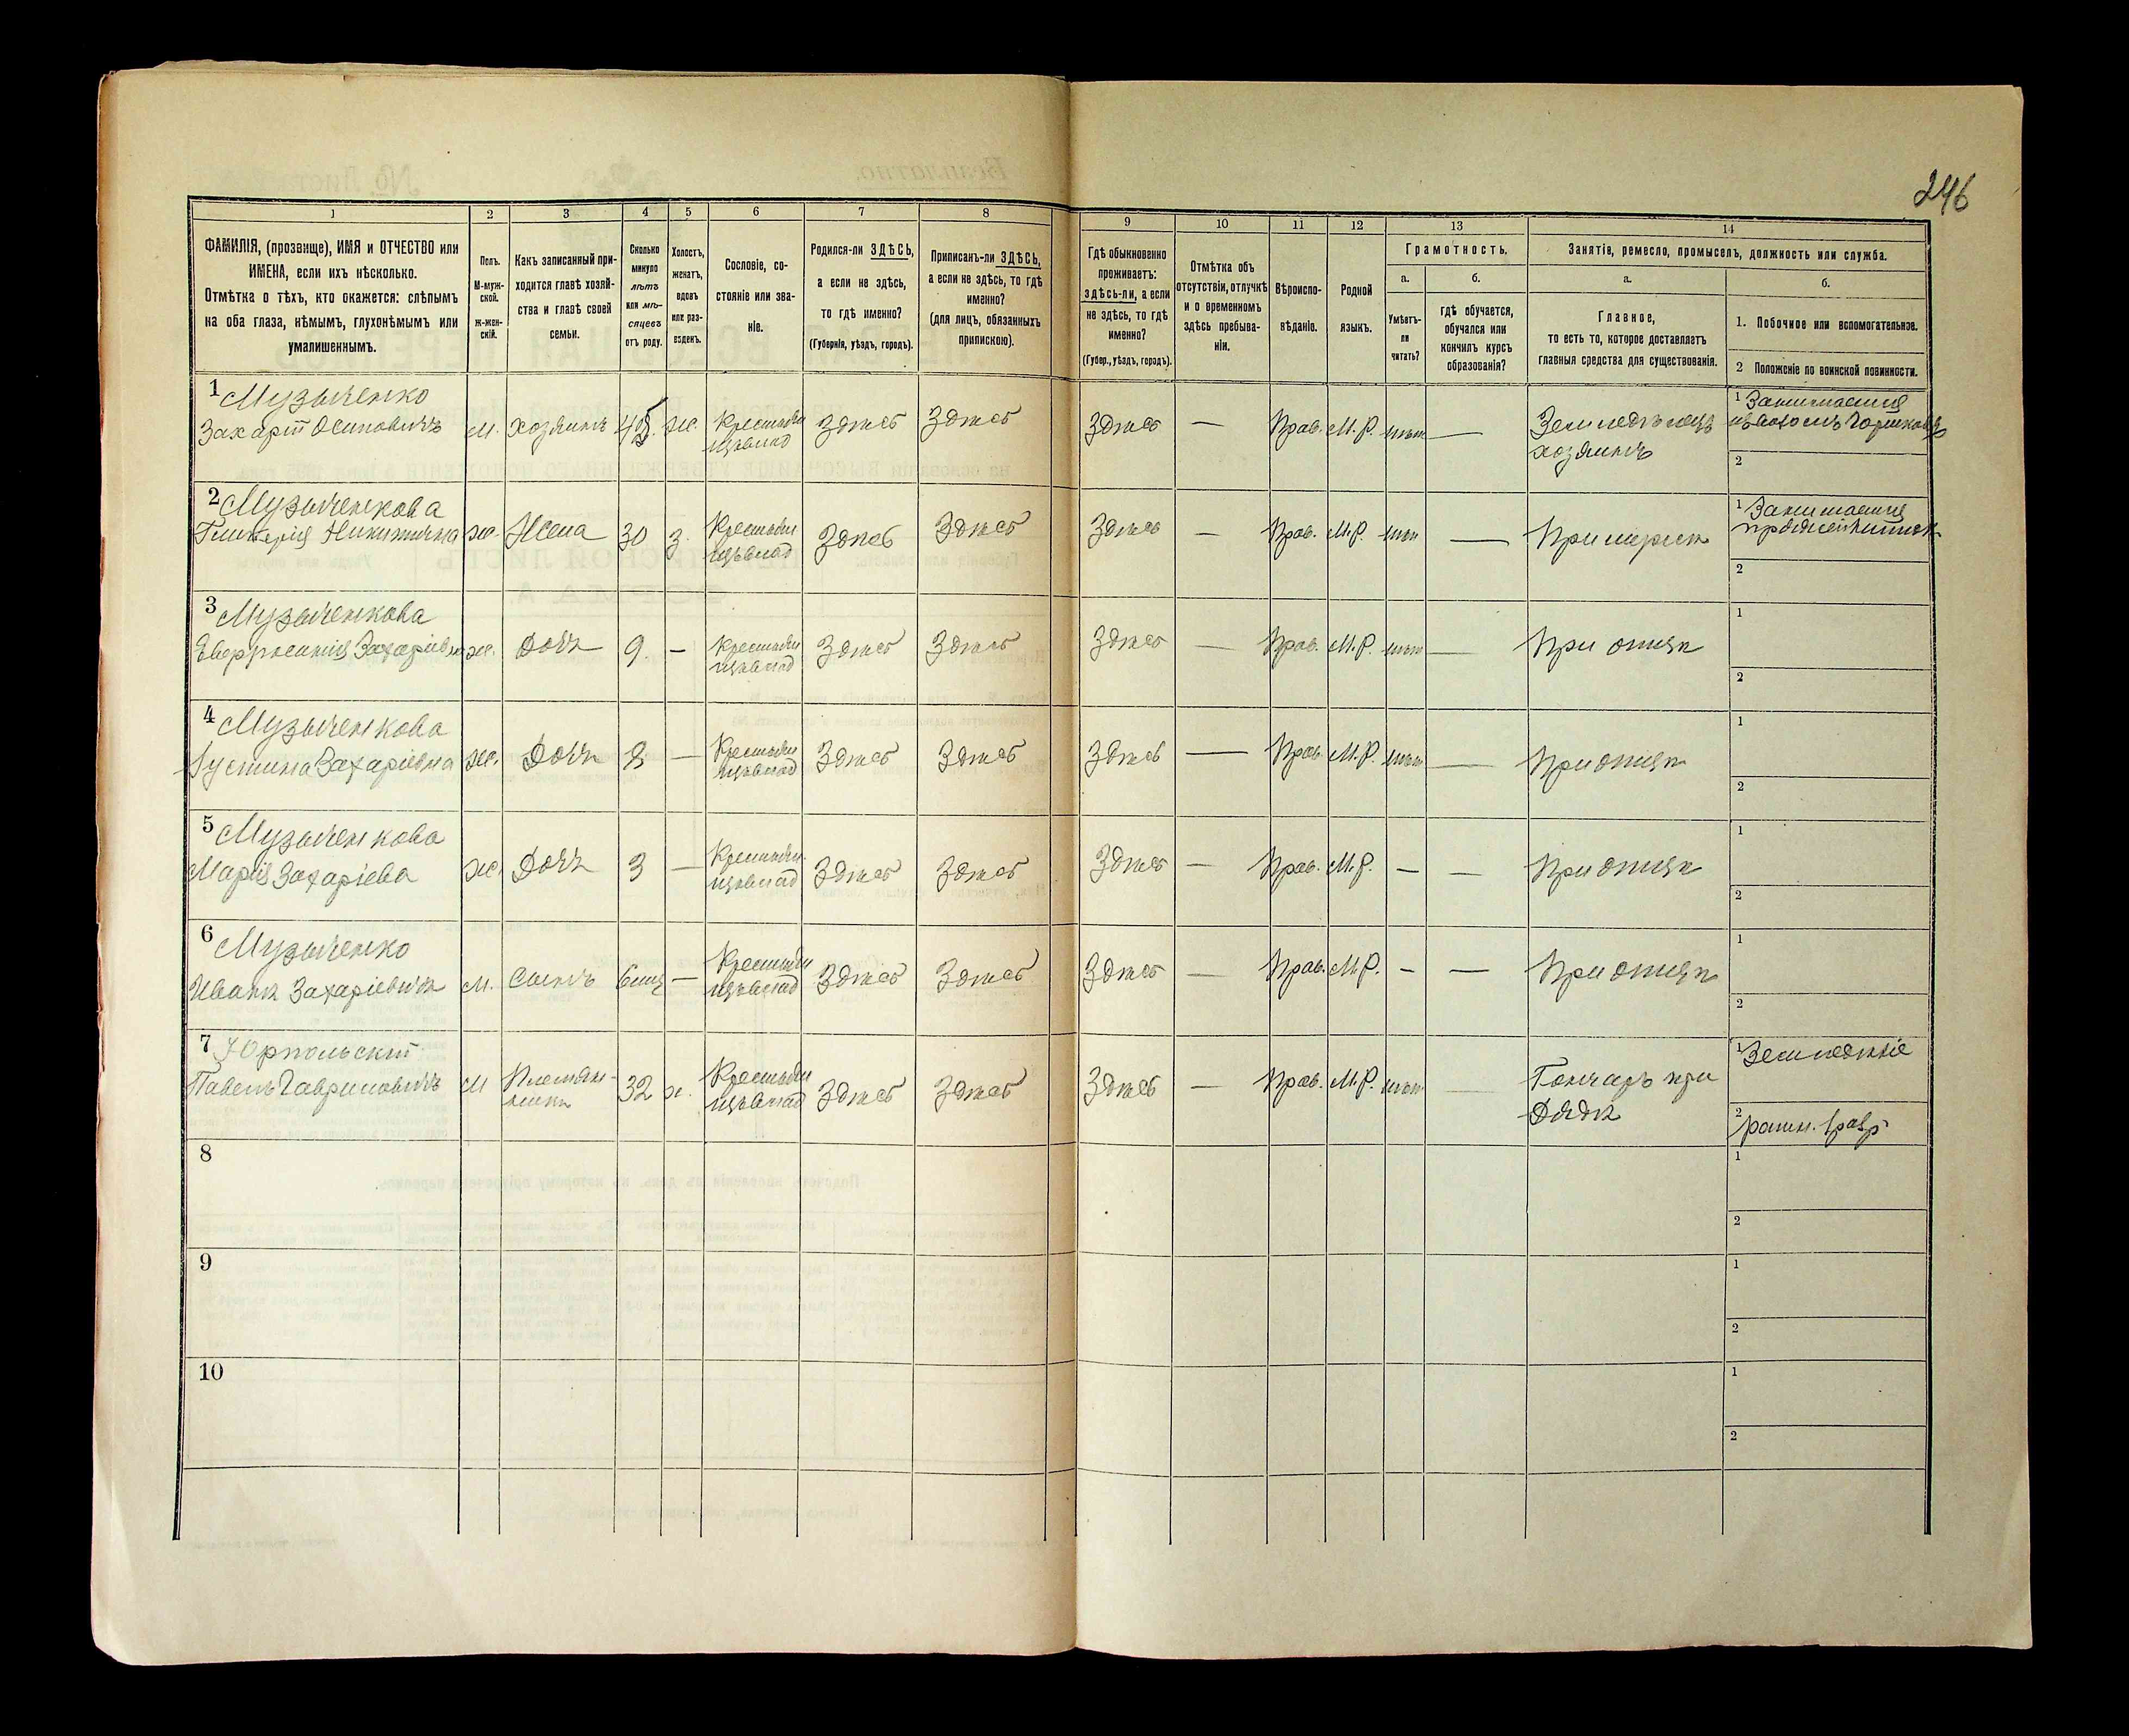 246
1 2 3 4 5 6 7 8 9 10 11 12 13 14
ФАМИЛІЯ, (прозвище), ИМЯ и ОТЧЕСТВО или
ИМЕНА, если ихъ нѣсколько.
Отмѣтка о тѣхъ, кто окажется: слѣпымъ
на оба глаза, нѣмымъ, глухонѣмымъ или
умалишеннымъ.
Полъ.
М-муж-
ской.
ж-жен-
скій.
Какъ записанный при-
ходится главѣ хозяй-
ства и главѣ своей
семьи.
Сколько
минуло
лѣтъ
или мѣ-
сяцевъ
отъ роду.
Холостъ,
женатъ,
вдовъ
или раз-
веденъ.
Сословіе, со-
стояніе или зва-
ніе.
Родился-ли ЗДѢСЬ,
а если не здѣсь,
то гдѣ именно?
(Губернія, уѣздъ, городъ).
Приписанъ-ли ЗДѢСЬ,
а если не здѣсь, то гдѣ
именно?
(для лицъ, обязанныхъ
припискою).
Гдѣ обыкновенно
проживаетъ:
здѣсь-ли, а если
не здѣсь, то гдѣ
именно?
(Губер., уѣздъ, городъ).
Отмѣтка объ
отсутствіи, отлучкѣ
и о временномъ
здѣсь пребыва-
ніи.
Вѣроиспо-
вѣданіе.
Родной
языкъ.
Грамотность.
а.
Умѣетъ-
ли
читать?
б.
гдѣ обучается,
обучался или
кончилъ курсъ
образованія?
Занятіе, ремесло, промыселъ, должность или служба.
а.
Главное,
то есть то, которое доставляетъ
главныя средства для существованія.
б.
1. Побочное или вспомогательное.
2 Положеніе по воинской повинности.
1 Музыченко
Захарій Осиповичъ м. хозяинъ ж. здѣсь здѣсь здѣсь — Прав. М.Р. нѣтъ — Земледѣлецъ
хозяинъ
1
2
2 Музыченкова
Никитична ж. Жена 30 з. здѣсь здѣсь здѣсь — Прав. М.Р. нѣтъ — При мужѣ
1
2
3 Музыченкова
Евфросинія Захаріевна ж. Дочь 9. — здѣсь здѣсь здѣсь — Прав. М.Р. нѣтъ — При отцѣ
1
2
4 Музыченкова
Устина Захаріевна ж. Дочь 8 — здѣсь здѣсь здѣсь — Прав. М.Р. нѣтъ — При отцѣ
1
2
5 Музыченкова
Марія Захаріева ж. Дочь 3 — здѣсь здѣсь здѣсь — Прав. М.Р. — — При отцѣ
1
2
6 Музыченко
Иванъ Захаріевичъ м. Сынъ — здѣсь здѣсь здѣсь — Прав. М.Р. — — При отцѣ
1
2
7
Павелъ Гавриловичъ м Племян-
никъ 32 х. здѣсь здѣсь здѣсь — Прав. М.Р. нѣтъ — Гончаръ при
Дядѣ
1 Земледѣліе
2
8
1
2
9
1
2
10
1
2